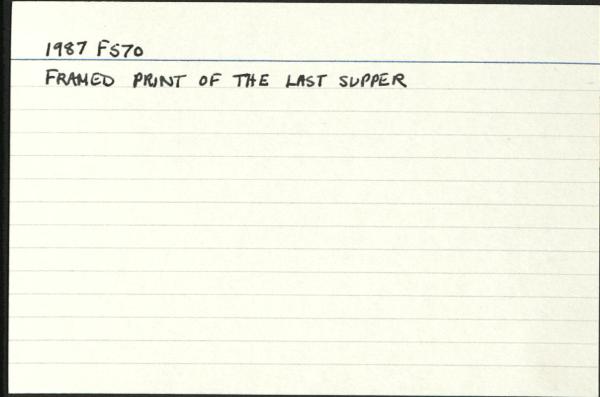 1987 F570
FRAMED PRINT OF THE LAST SUPPER